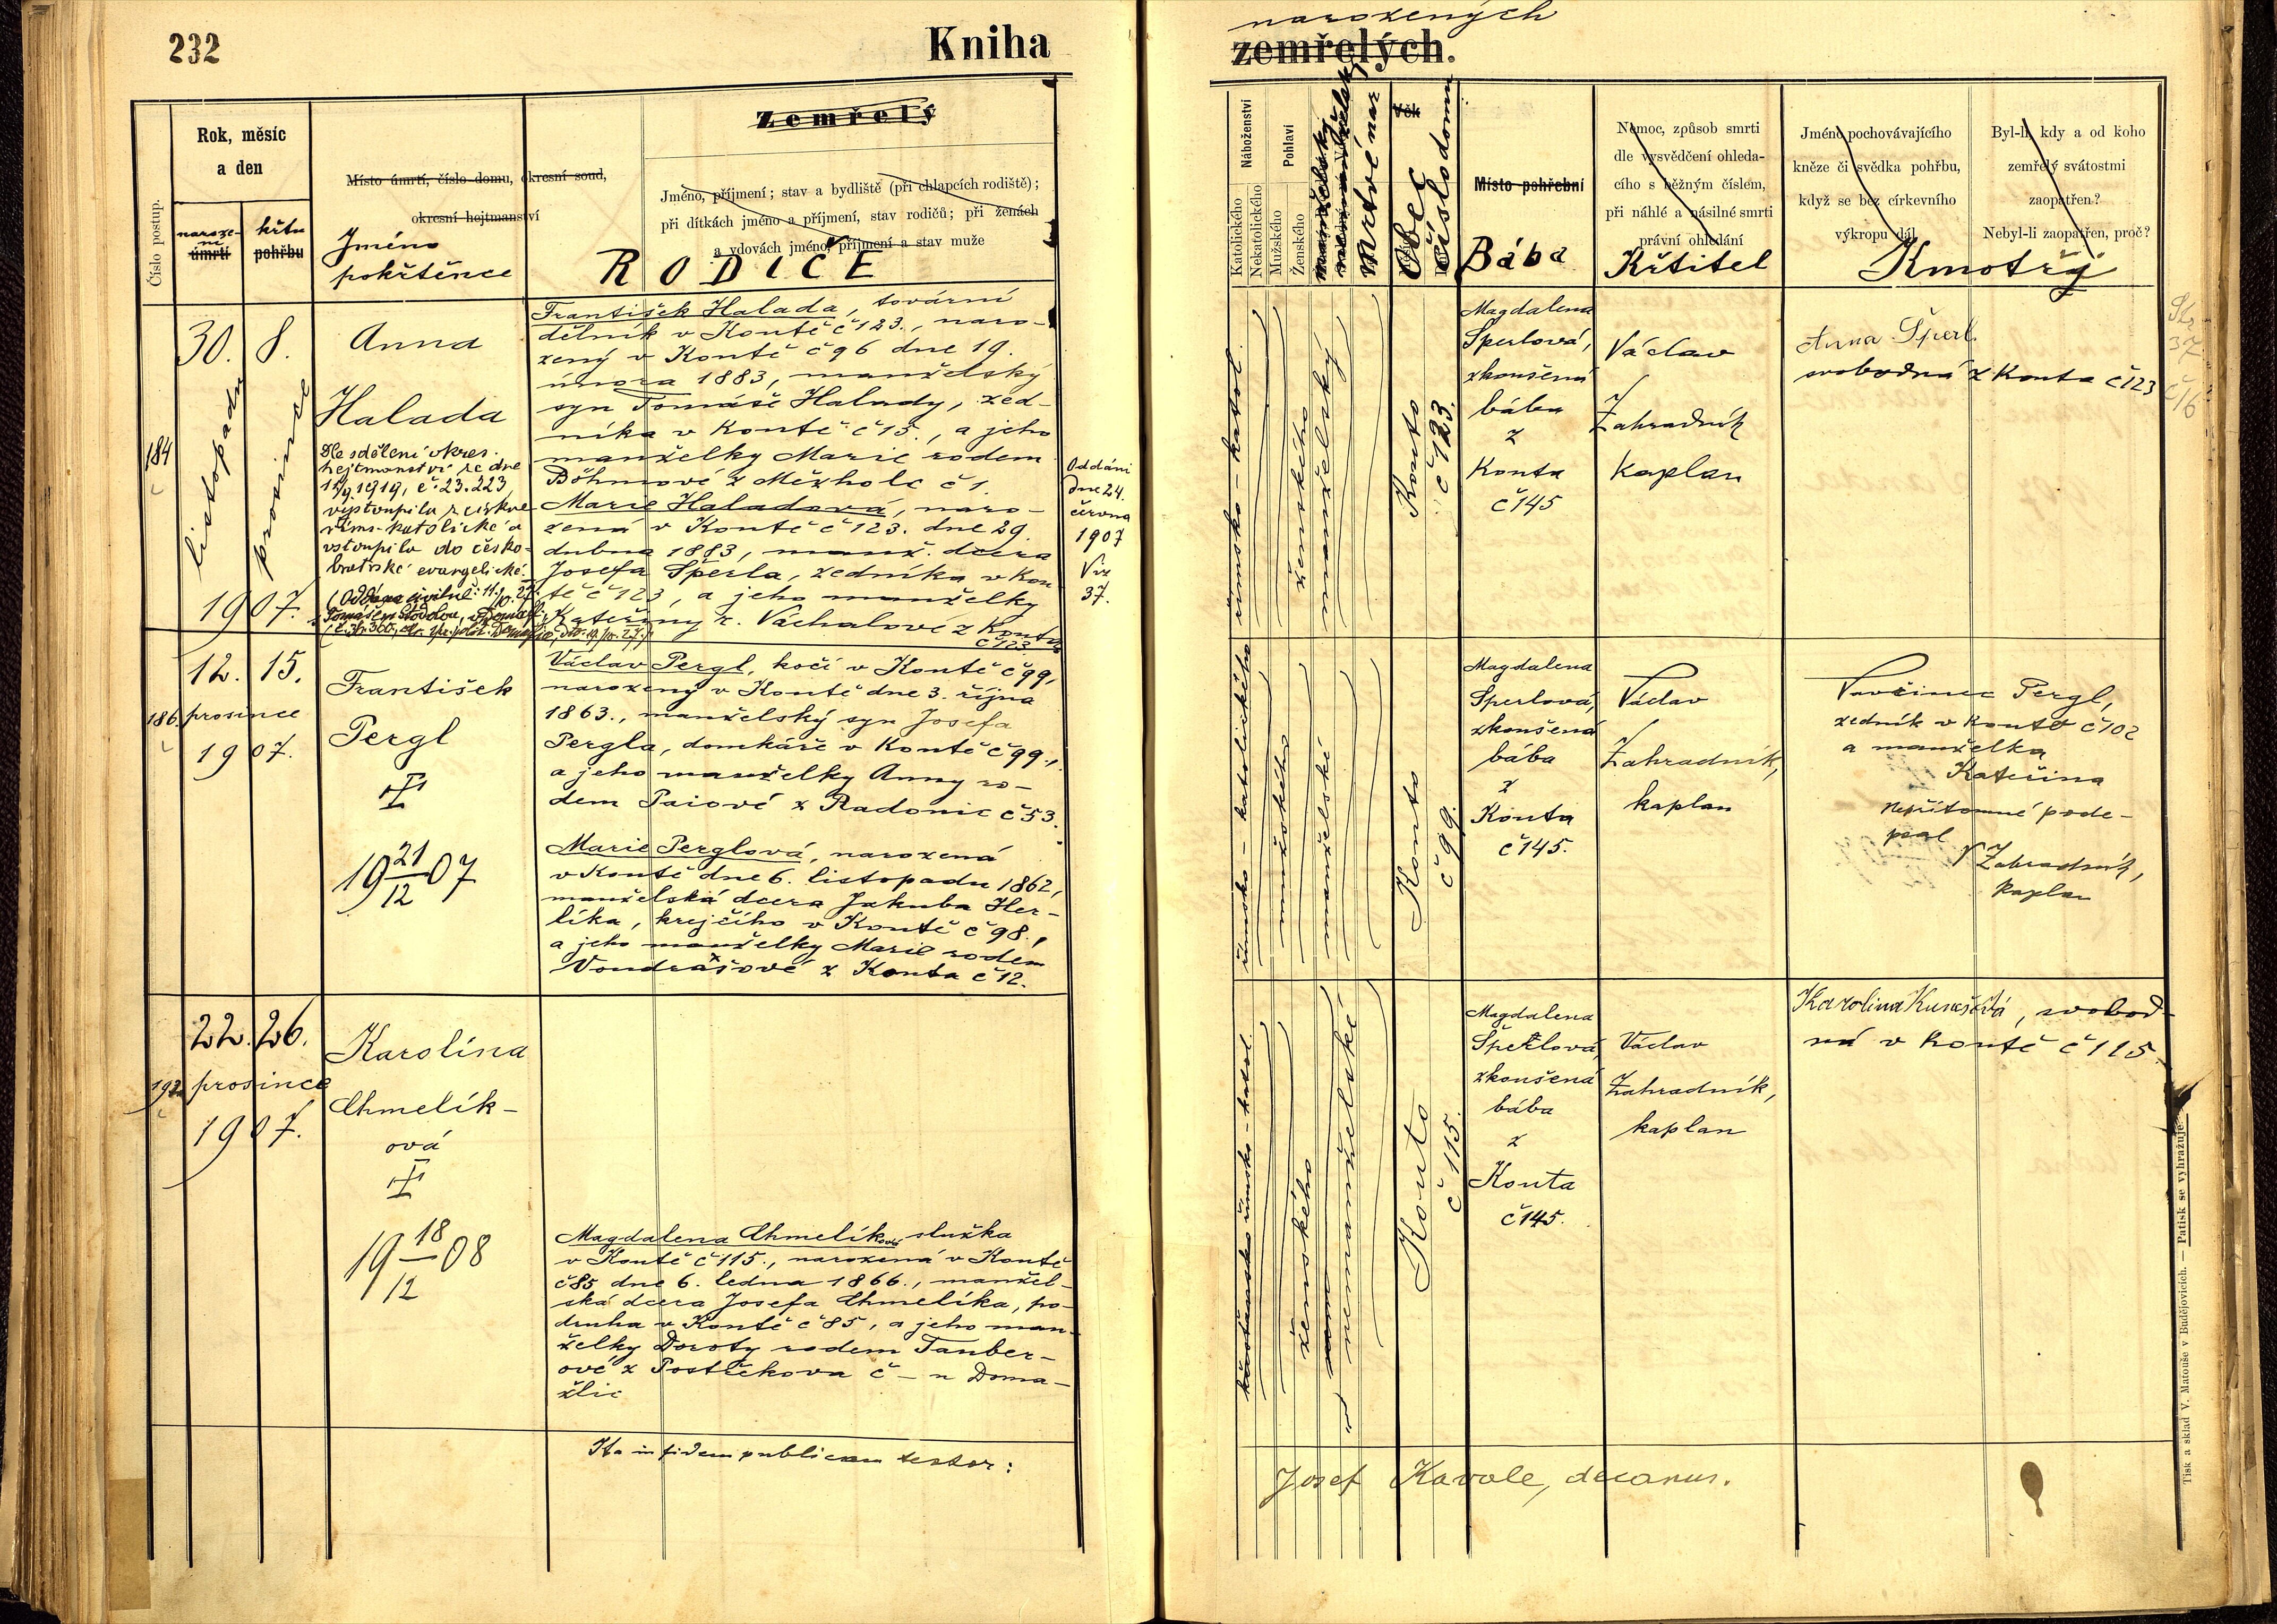 232
Kniha
narozených
zemřelých.
Rok, měsíc
a den
Číslo postup.
naroze-
ní
úmrtí
křtu
pohřbu
Místo úmrtí, číslo domu, okresní soud,
okresní hejtmanství
Jméno
pokřtěnce
Zemřelý
Jméno, příjmení; stav a bydliště (při chlapcích rodiště);
při dítkách jméno a příjmení, stav rodičů; při ženách
a vdovách jméno, příjmení a stav muže
RODIČE
Náboženství
Katolického
Nekatolického
Pohlaví
Mužského
Ženského
Mrtvé nar
Věk
Obec
Číslo domu
Místo pohřební
Bába
Nemoc, způsob smrti
dle vysvědčení ohleda-
cího s běžným číslem,
při náhlé a násilné smrti
právní ohledání
Křtitel
Jméno pochovávajícího
kněze či svědka pohřbu,
když se bez církevního
výkropu dál
Byl-li, kdy a od koho
zemřelý svátostmi
zaopatřen?
Nebyl-li zaopatřen, proč?
Kmotři
184
30.
listopadu
8.
prosince
1907.
Anna
Halada
Dle sdělení okres.
hejtmanství ze dne
1919, č. 23.223
vystoupila z církve
řims. katolické a
vstoupila do česko-
bratrské evangelické
František Halada, tovární
dělník v Koutě č 123., naro-
zený v Koutě č 96 dne 19.
února 1883, manželský
syn Tomáše Halady, zed-
níka v Koutě č 15., a jeho
manželky Marie rodem
Böhmové z Mezholc č 1.
Marie Haladová, naro-
zená v Koutě č 123. dne 29.
dubna 1883, manž. dcera
Josefa Šperla, zedníka v Kou
tě č 123, a jeho manželky
Kateřiny r. Váchalové z Kouta
č 123.
Oddáni
dne 24.
června
1907
Viz
37.
římsko-katol.
ženského
manželský
Kouto
č 123.
Magdalena
Šperlová,
zkoušená
bába
z
Kouta
č 145
Václav
Zahradník
kaplan
Anna Šperl
svobodná z Kouta č 123
Str
37
č 16
186
12. 15.
prosince
1907.
František
Pergl
19 21/12 07
Václav Pergl, kočí v Koutě č 99,
narozený v Koutě dne 3. října
1863., manželský syn Josefa
Pergla, domkáře v Koutě č 99.,
a jeho manželky Anny ro-
dem Paiové z Radonic č 53.
Marie Perglová, narozená
v Koutě dne 6. listopadu 1862,
manželská dcera Jakuba Her-
lika, krejčího v Koutě č 98.,
a jeho manželky Marie rodem
Vondrašové z Kouta č 12.
římsko-katolického
mužského
manželské
Kouto
č 99.
Magdalena
Šperlová,
zkoušená
bába
z
Kouta
č 145.
Václav
Zahradník,
kaplan
Vavřinec Pergl,
zedník v Koutě č 102
a manželka
Kateřina
Nepřítomné pode-
psal
V Zahradník,
kaplan
192
22. 26.
prosince
1907.
Karolína
Chmelík-
ová
19 18/12 08
Magdalena Chmelíková služka
v Koutě č 115., narozená v Koutě
č 85 dne 6. ledna 1866., manžel-
ská dcera Josefa Chmelíka, po-
druha v Koutě č 85, a jeho man-
želky Doroty rodem Tauber-
ové z Postřekova č – u Doma-
žlic
křesťansko římsko-katol.
ženského
nemanželské
Kouto
č 115.
Magdalena
Šperlová,
zkoušená
bába
z
Kouta
č 145.
Václav
Zahradník,
kaplan
svobod-
ná v Koutě č 115.
Ita in fidem publicam testor:
Josef Kavale, decanus.
Tisk a sklad V. Matouše v Budějovicích. — Patisk se vyhražuje.